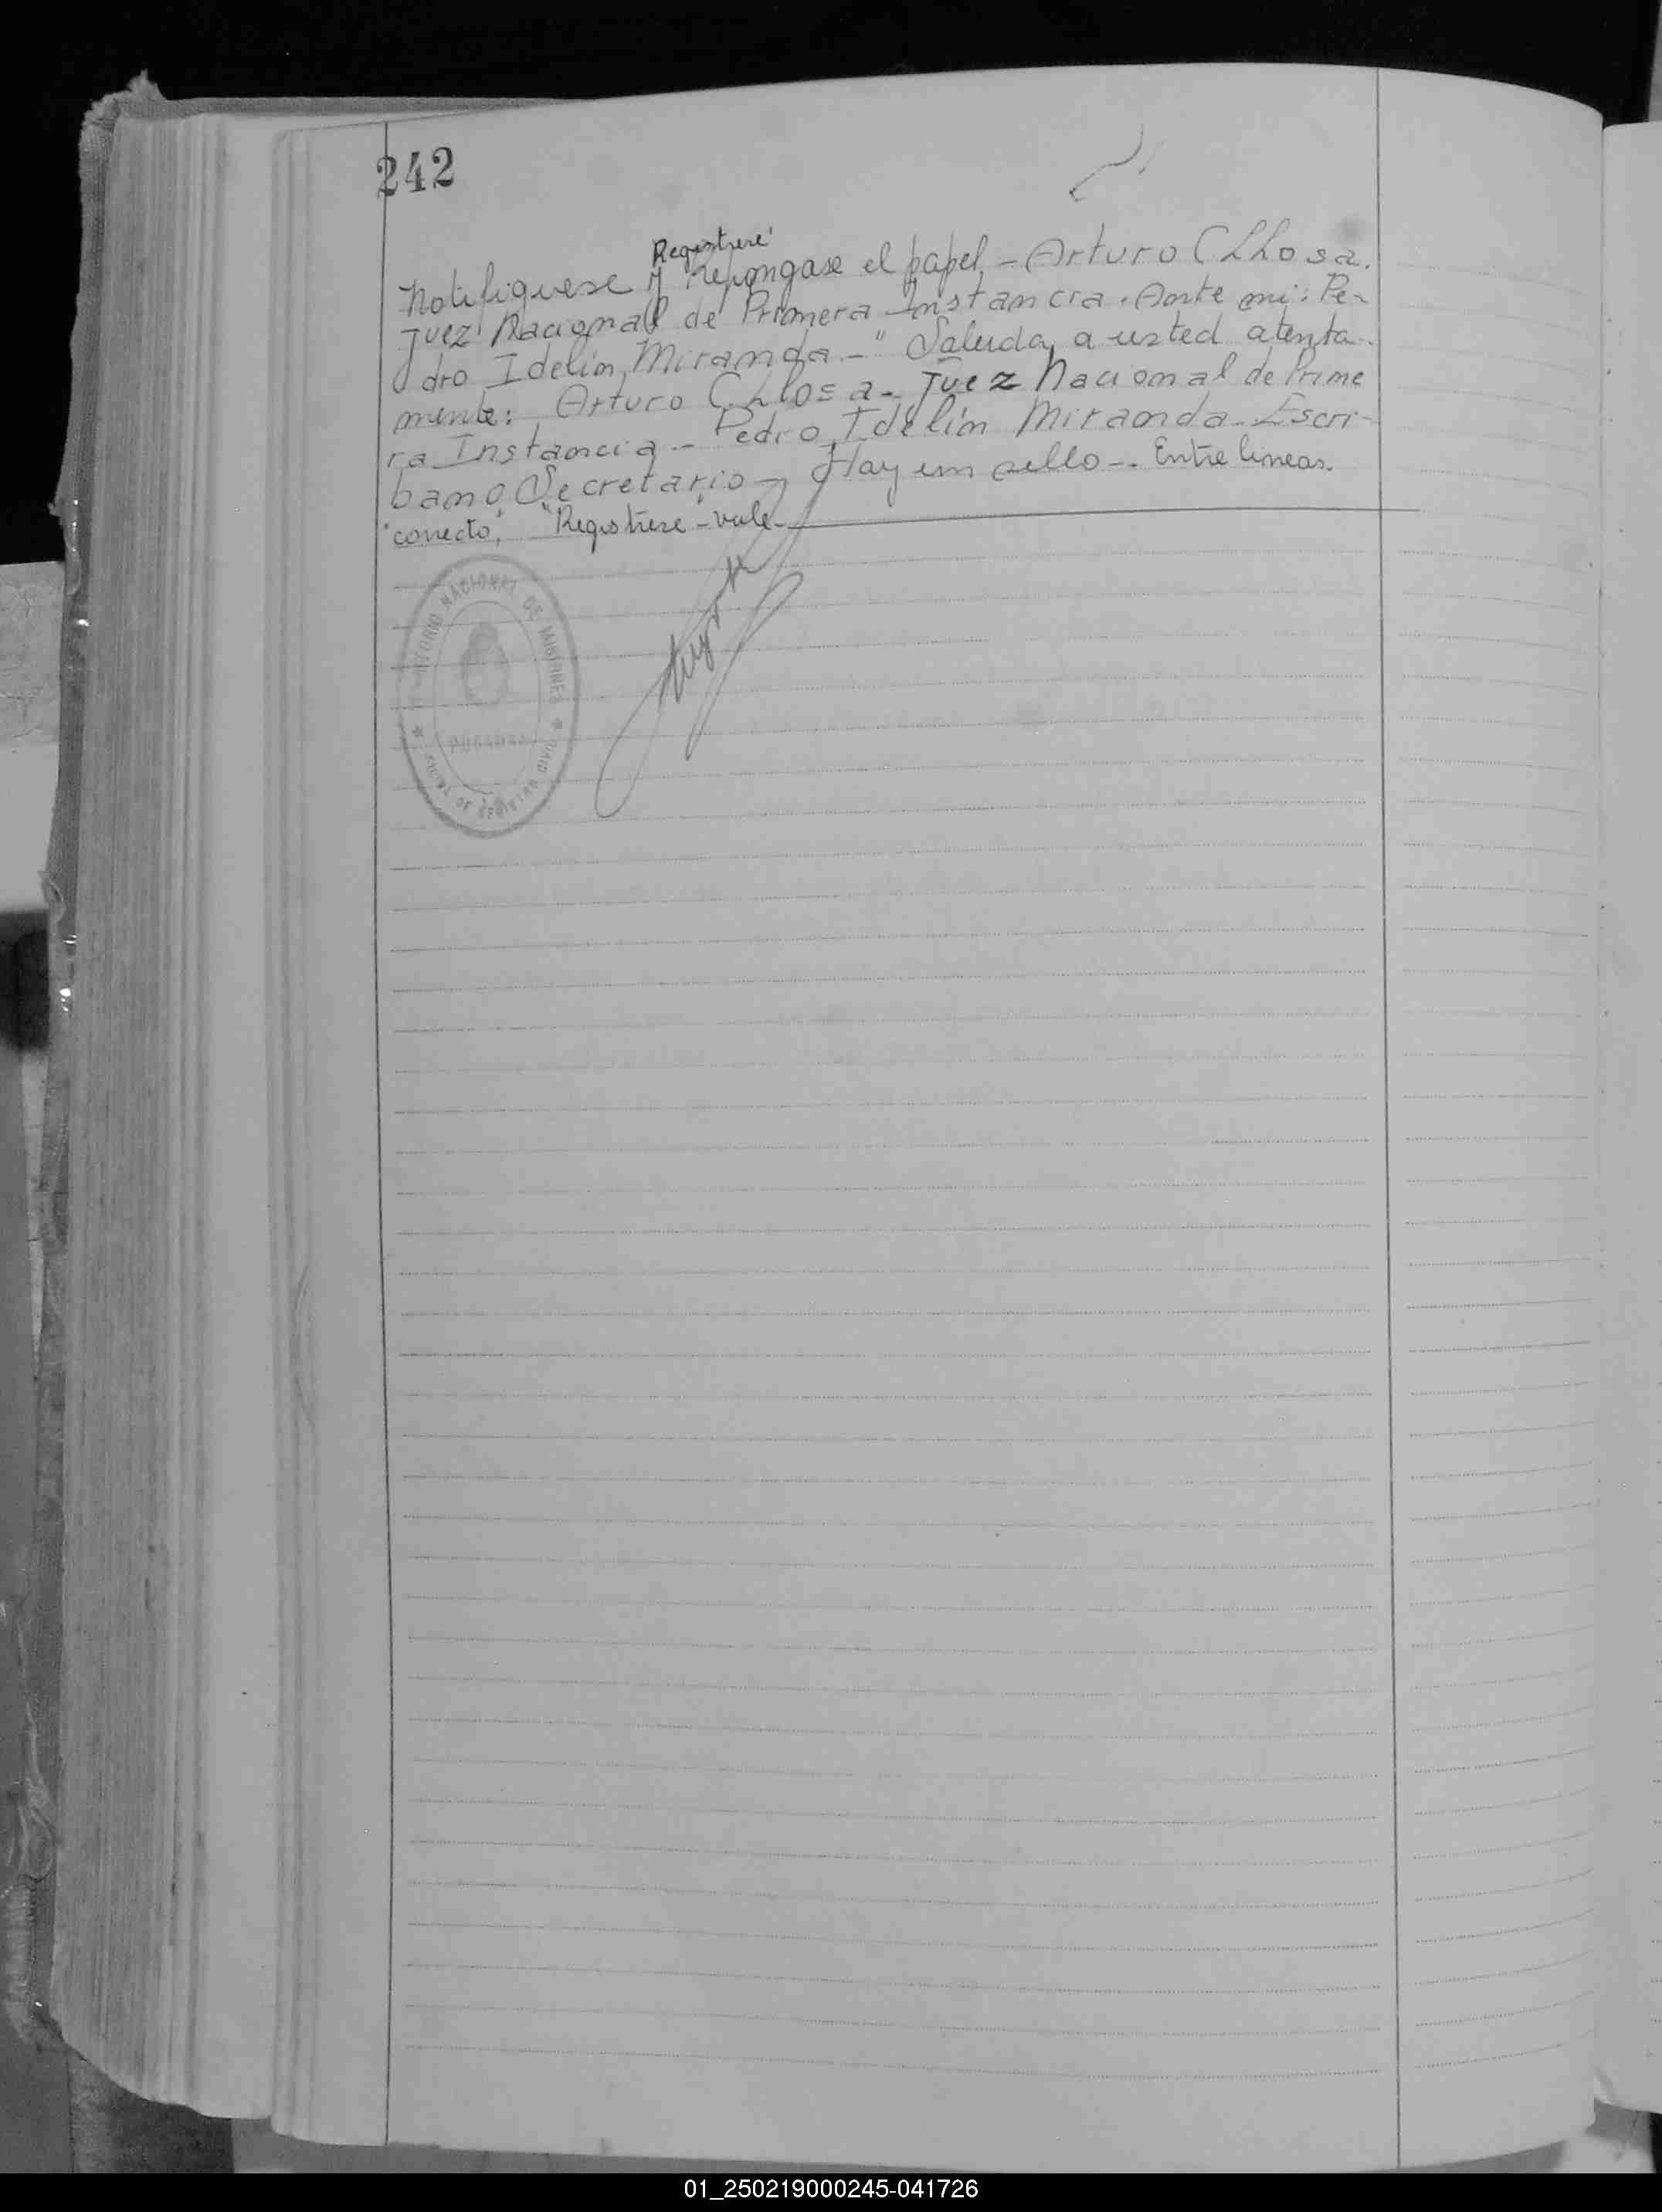 242
Registrese
Notifiquese y repongase el papel - Arturo C Llosa.
Juez Nacional de Primera Instancia. Ante mi: Pe-
dro Idelim Miranda -" Saluda a usted atenta-
mente: Arturo C. Llosa - Juez Nacional de Prime
ra Instancia - Pedro Idelim Miranda - Escri-
bano Secretario - Hay un sello -. Entre lineas.
"correcto," "Registrese - vale -
TERRITORIO NACIONAL DE MISIONES
POSADAS
DE REGISTRO CIVIL
01_250219000245-041726